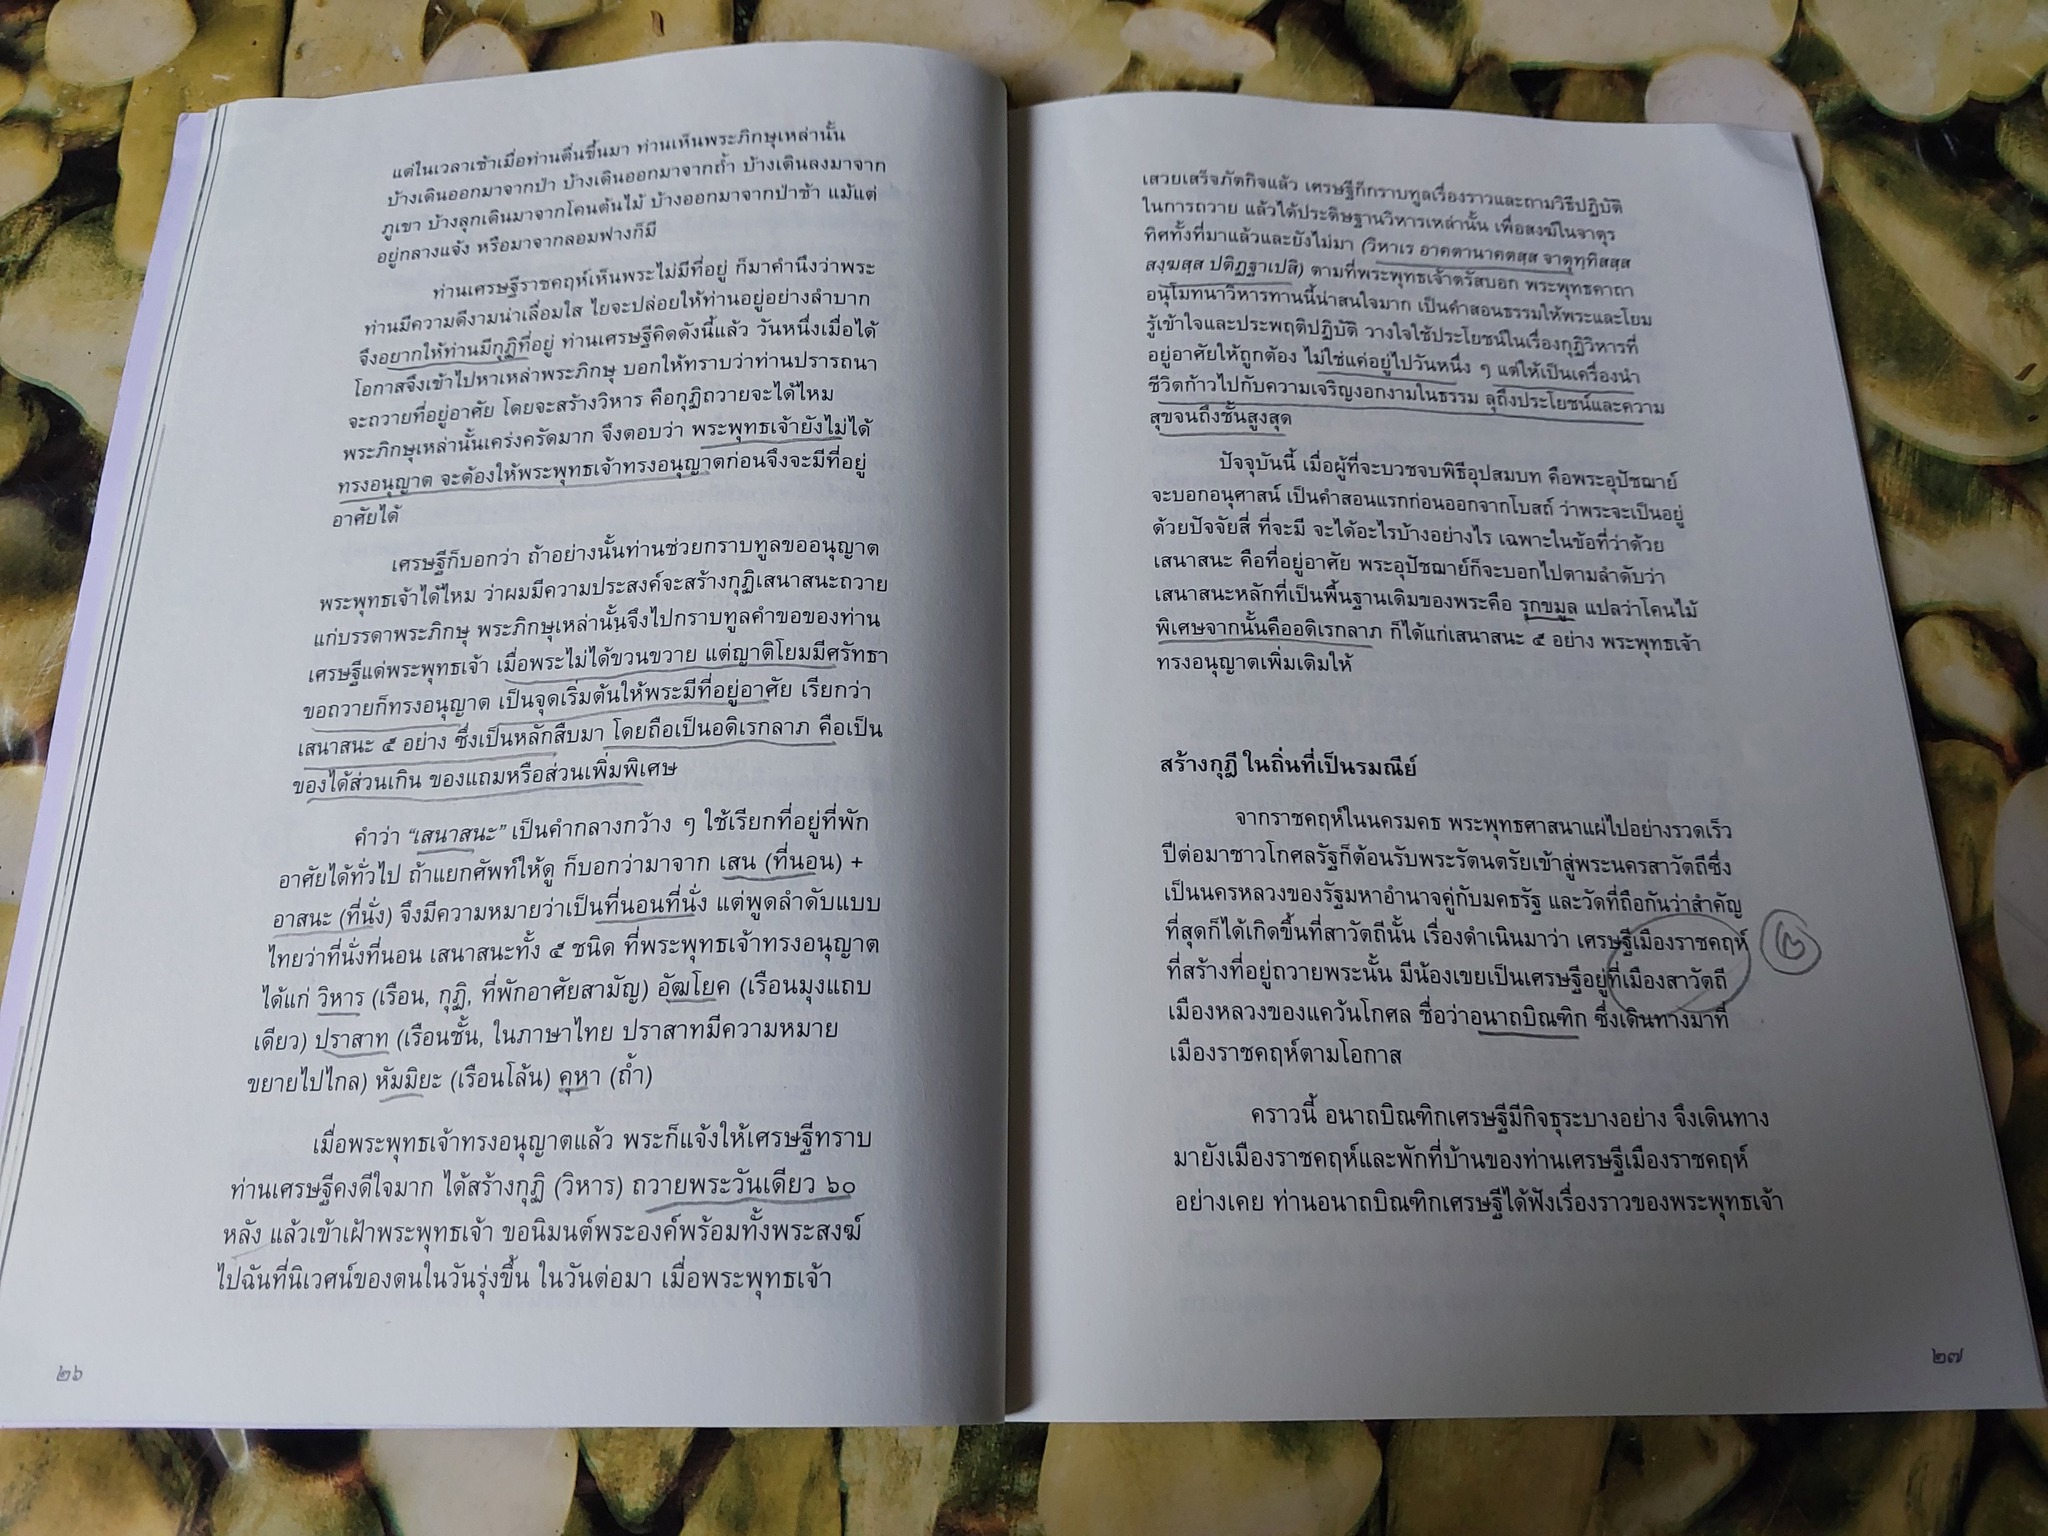 แต่ในเวลาเช้าเมื่อท่านตื่นขึ้นมา ท่านเห็นพระภิกษุเหล่านั้น
บ้างเดินออกมาจากป่า บ้างเดินออกมาจากถ้ำ บ้างเดินลงมาจาก
ภูเขา บ้างลุกเดินมาจากโคนต้นไม้ บ้างออกมาจากป่าช้า แม้แต่
อยู่กลางแจ้ง หรือมาจากลอมฟางก็มี
ท่านเศรษฐีราชคฤห์เห็นพระไม่มีที่อยู่ ก็มาคำนึงว่าพระ
ท่านมีความดีงามน่าเลื่อมใส ไยจะปล่อยให้ท่านอยู่อย่างลำบาก
จึงอยากให้ท่านมีกุฏิที่อยู่ ท่านเศรษฐีคิดดังนี้แล้ว วันหนึ่งเมื่อได้
โอกาสจึงเข้าไปหาเหล่าพระภิกษุ บอกให้ทราบว่าท่านปรารถนา
จะถวายที่อยู่อาศัย โดยจะสร้างวิหาร คือกุฏิถวายจะได้ไหม
พระภิกษุเหล่านั้นเคร่งครัดมาก จึงตอบว่า พระพุทธเจ้ายังไม่ได้
ทรงอนุญาต จะต้องให้พระพุทธเจ้าทรงอนุญาตก่อนจึงจะมีที่อยู่
อาศัยได้
เศรษฐีก็บอกว่า ถ้าอย่างนั้นท่านช่วยกราบทูลขออนุญาต
พระพุทธเจ้าได้ไหม ว่าผมมีความประสงค์จะสร้างกุฏิเสนาสนะถวาย
แก่บรรดาพระภิกษุ พระภิกษุเหล่านั้นจึงไปกราบทูลคำขอของท่าน
เศรษฐีแด่พระพุทธเจ้า เมื่อพระไม่ได้ขวนขวาย แต่ญาติโยมมีศรัทธา
ขอถวายก็ทรงอนุญาต เป็นจุดเริ่มต้นให้พระมีที่อยู่อาศัย เรียกว่า
เสนาสนะ ๕ อย่าง ซึ่งเป็นหลักสืบมา โดยถือเป็นอดิเรกลาภ คือเป็น
ของได้ส่วนเกิน ของแถมหรือส่วนเพิ่มพิเศษ
คำว่า “เสนาสนะ” เป็นคำกลางกว้าง ๆ ใช้เรียกที่อยู่ที่พัก
อาศัยได้ทั่วไป ถ้าแยกศัพท์ให้ดู ก็บอกว่ามาจาก เสน (ที่นอน) +
อาสนะ (ที่นั่ง) จึงมีความหมายว่าเป็นที่นอนที่นั่ง แต่พูดลำดับแบบ
ไทยว่าที่นั่งที่นอน เสนาสนะทั้ง ๕ ชนิด ที่พระพุทธเจ้าทรงอนุญาต
ได้แก่ วิหาร (เรือน, กุฏิ, ที่พักอาศัยสามัญ) อัฒโยค (เรือนมุงแถบ
เดียว) ปราสาท (เรือนชั้น, ในภาษาไทย ปราสาทมีความหมาย
ขยายไปไกล) หัมมิยะ (เรือนโล้น) คุหา (ถ้ำ)
เมื่อพระพุทธเจ้าทรงอนุญาตแล้ว พระก็แจ้งให้เศรษฐีทราบ
ท่านเศรษฐีคงดีใจมาก ได้สร้างกุฏิ (วิหาร) ถวายพระวันเดียว ๖๐
หลัง แล้วเข้าเฝ้าพระพุทธเจ้า ขอนิมนต์พระองค์พร้อมทั้งพระสงฆ์
ไปฉันที่นิเวศน์ของตนในวันรุ่งขึ้น ในวันต่อมา เมื่อพระพุทธเจ้า
๒๖
เสวยเสร็จภัตกิจแล้ว เศรษฐีก็กราบทูลเรื่องราวและถามวิธีปฏิบัติ
ในการถวาย แล้วได้ประดิษฐานวิหารเหล่านั้น เพื่อสงฆ์ในจาตุร
ทิศทั้งที่มาแล้วและยังไม่มา (วิหาเร อาคตานาคตสฺส จาตุทฺทิสสฺส
สงฺฆสฺส ปติฏฺฐาเปสิ) ตามที่พระพุทธเจ้าตรัสบอก พระพุทธคาถา
อนุโมทนาวิหารทานนี้น่าสนใจมาก เป็นคำสอนธรรมให้พระและโยม
รู้เข้าใจและประพฤติปฏิบัติ วางใจใช้ประโยชน์ในเรื่องกุฏิวิหารที่
อยู่อาศัยให้ถูกต้อง ไม่ใช่แค่อยู่ไปวันหนึ่ง ๆ แต่ให้เป็นเครื่องนำ
ชีวิตก้าวไปกับความเจริญงอกงามในธรรม ลุถึงประโยชน์และความ
สุขจนถึงชั้นสูงสุด
ปัจจุบันนี้ เมื่อผู้ที่จะบวชจบพิธีอุปสมบท คือพระอุปัชฌาย์
จะบอกอนุศาสน์ เป็นคำสอนแรกก่อนออกจากโบสถ์ ว่าพระจะเป็นอยู่
ด้วยปัจจัยสี่ ที่จะมี จะได้อะไรบ้างอย่างไร เฉพาะในข้อที่ว่าด้วย
เสนาสนะ คือที่อยู่อาศัย พระอุปัชฌาย์ก็จะบอกไปตามลำดับว่า
เสนาสนะหลักที่เป็นพื้นฐานเดิมของพระคือ รุกขมูล แปลว่าโคนไม้
พิเศษจากนั้นคืออดิเรกลาภ ก็ได้แก่เสนาสนะ ๕ อย่าง พระพุทธเจ้า
ทรงอนุญาตเพิ่มเติมให้
สร้างกุฎี ในถิ่นที่เป็นรมณีย์
จากราชคฤห์ในนครมคธ พระพุทธศาสนาแผ่ไปอย่างรวดเร็ว
ปีต่อมาชาวโกศลรัฐก็ต้อนรับพระรัตนตรัยเข้าสู่พระนครสาวัตถีซึ่ง
เป็นนครหลวงของรัฐมหาอำนาจคู่กับมคธรัฐ และวัดที่ถือกันว่าสำคัญ
ที่สุดก็ได้เกิดขึ้นที่สาวัตถีนั้น เรื่องดำเนินมาว่า เศรษฐีเมืองราชคฤห์ ๒
ที่สร้างที่อยู่ถวายพระนั้น มีน้องเขยเป็นเศรษฐีอยู่ที่เมืองสาวัตถี
เมืองหลวงของแคว้นโกศล ชื่อว่าอนาถบิณฑิก ซึ่งเดินทางมาที่
เมืองราชคฤห์ตามโอกาส
คราวนี้ อนาถบิณฑิกเศรษฐีมีกิจธุระบางอย่าง จึงเดินทาง
มายังเมืองราชคฤห์และพักที่บ้านของท่านเศรษฐีเมืองราชคฤห์
อย่างเคย ท่านอนาถบิณฑิกเศรษฐีได้ฟังเรื่องราวของพระพุทธเจ้า
๒๗